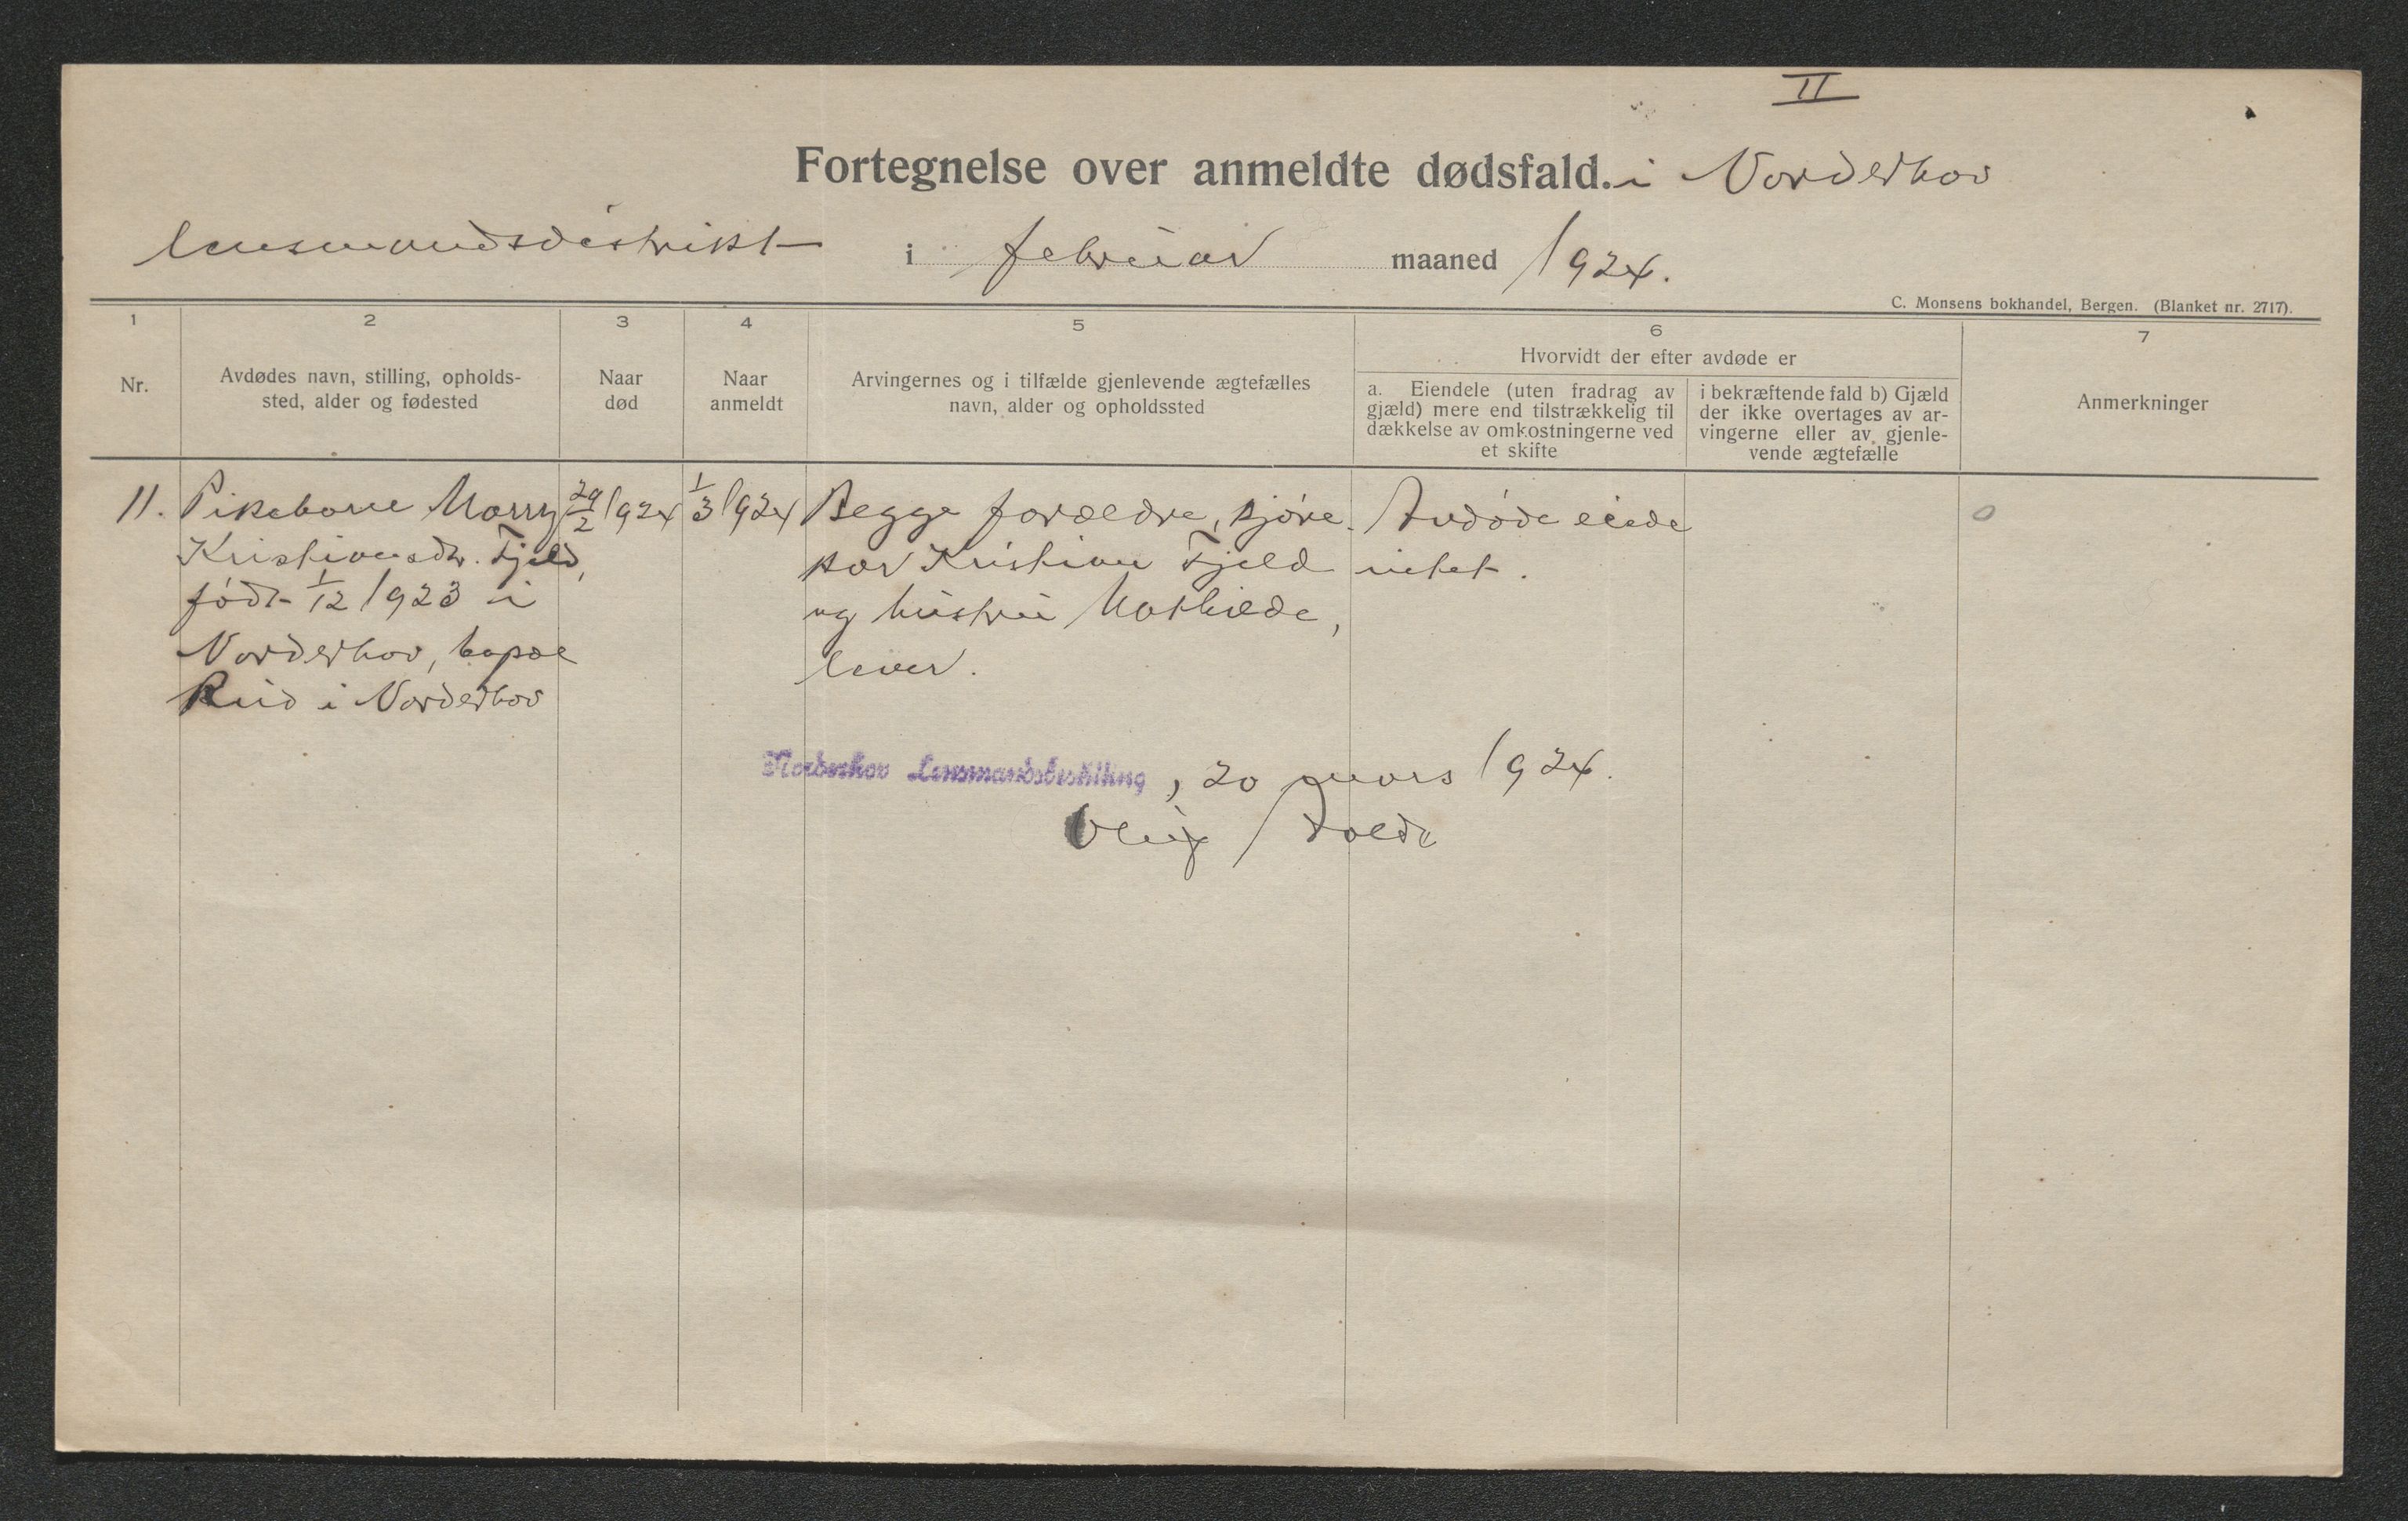 II
Fortegnelse over anmeldte dødsfald. i Norderhov
lensmandsdistrikt i februar maaned 1924.
C. Monsens bokhandel, Bergen. (Blanket nr. 2717).
1 2 3 4 5 6 7
Nr.
Avdødes navn, stilling, opholds-
sted, alder og fødested
Naar
død
Naar
anmeldt
Arvingernes og i tilfælde gjenlevende ægtefælles
navn, alder og opholdssted
Hvorvidt der efter avdøde er
a. Eiendele (uten fradrag av
gjæld) mere end tilstrækkelig til
dækkelse av omkostningerne ved
et skifte
i bekræftende fald b) Gjæld
der ikke overtages av ar-
vingerne eller av gjenle-
vende ægtefælle
Anmerkninger
11. Pikebarn Marry
Kristiansdtr. Fjeld,
født 1/12 1923 i
Norderhov, bopæl
Rud i Norderhov
29/2 1924
1/3 1924
Begge forældre, kjøre-
kar Kristian Fjeld
og hustru Mathilde,
lever.
Avdøde eiede
intet.
0
Norderhov Lensmandsbestilling, 20 mars 1924.